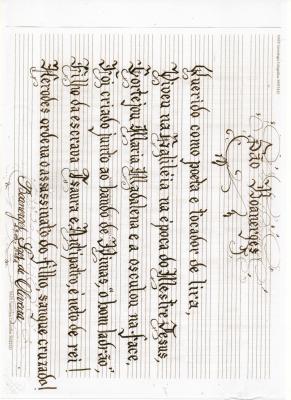 São Boanerges
Querido como poeta e tocador de lira,
Viveu na Galiléia na época do Mestre Jesus,
Cortejou Maria Madalena e a osculou na face,
Foi criado junto ao bando de Dimas, "o bom ladrão",
Filho da escrava Isaura e Antipatro, é neto de rei!
Herodes ordena o assassinato do filho, sangue cruzado!
de Oliveira